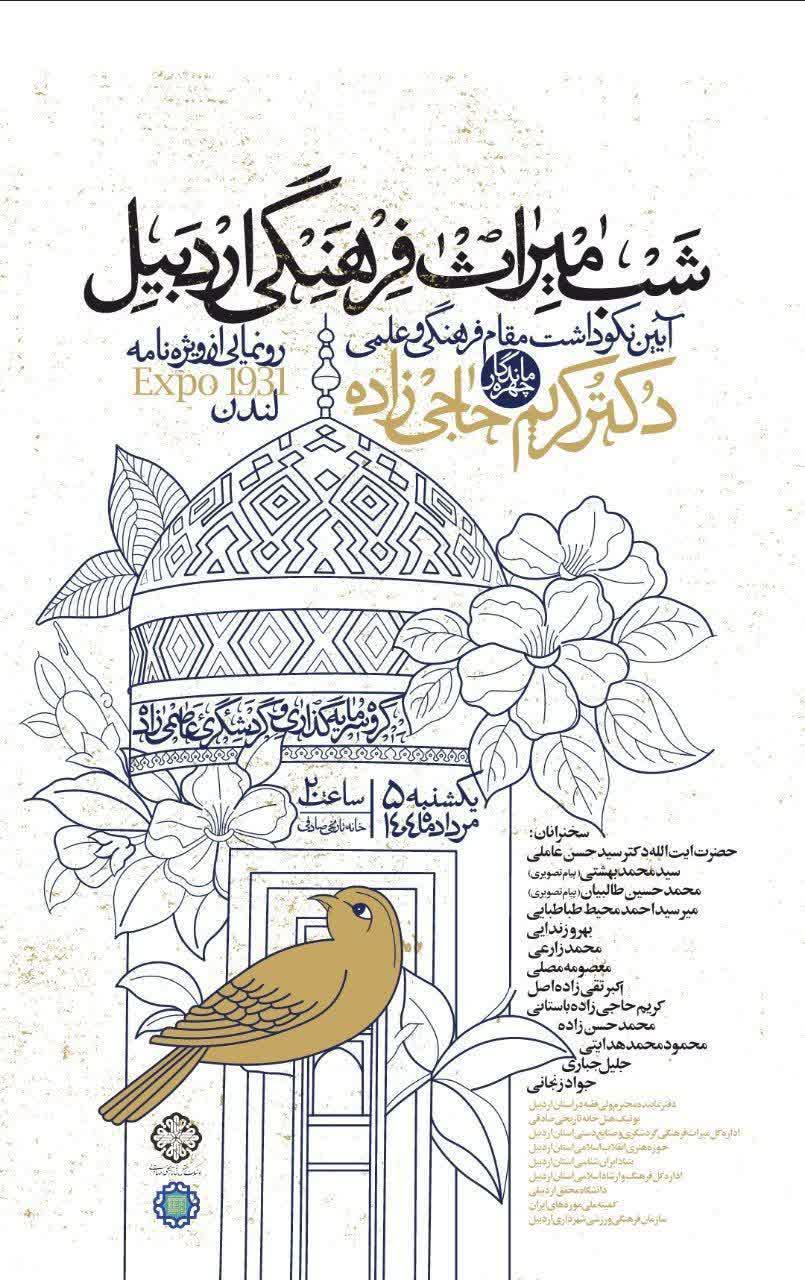 شب میراث فرهنگی اردبیل
آیین نکوداشت مقام فرهنگی و علمی
چهره ماندگار
دکتر کریم حاجی زاده
رونمایی از ویژه نامه
Expo 1931
لندن
گروه سرمایه گذاری و گردشگری عاصمی زاده
یکشنبه ۵
مرداد ماه ۱۴۰۴
ساعت ۲۰
خانه تاریخی صادقی
سخنرانان:
حضرت آیت الله دکتر سید حسن عاملی
سید محمد بهشتی (پیام تصویری)
محمد حسین طالبیان (پیام تصویری)
میر سید احمد محیط طباطبایی
بهروز ندایی
محمد زارعی
معصومه مصلی
اکبر تقی زاده اصل
کریم حاجی زاده باستانی
محمد حسن زاده
محمود محمد هدایتی
جلیل جباری
جواد زنجانی
دفتر نماینده محترم ولی فقیه در استان اردبیل
بوتیک هتل خانه تاریخی صادقی
اداره کل میراث فرهنگی گردشگری و صنایع دستی استان اردبیل
حوزه هنری انقلاب اسلامی استان اردبیل
بنیاد ایران شناسی استان اردبیل
اداره کل فرهنگ و ارشاد اسلامی استان اردبیل
دانشگاه محقق اردبیلی
کمیته ملی موزه های ایران
سازمان فرهنگی ورزشی شهرداری اردبیل